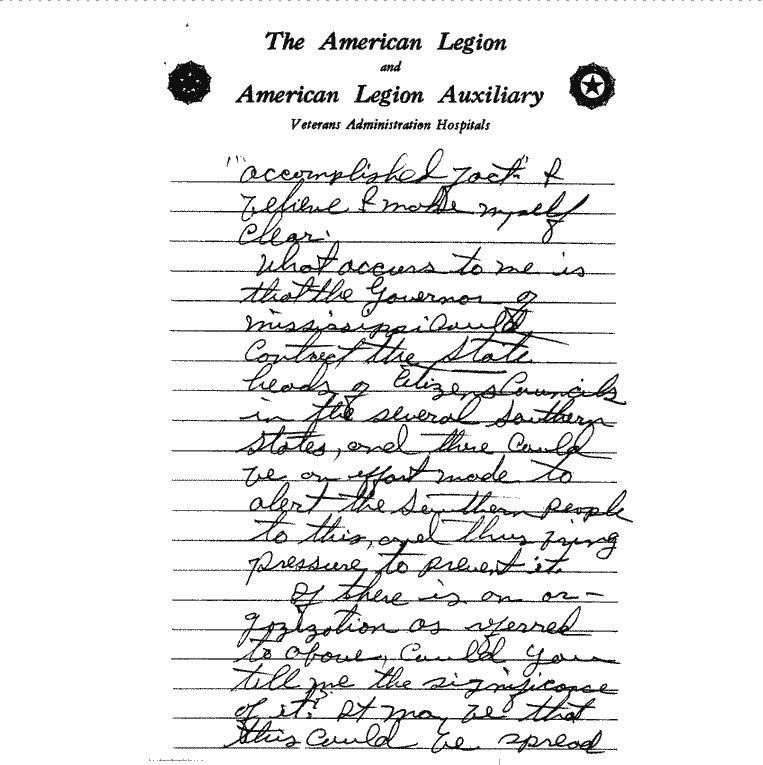 The American Legion
and
American Legion Auxiliary
Veterans Administration Hospitals
"accomplished fact" I
believe I make myself
clear.
What occurs to me is
that the Governor of
Mississippi could
Contact the State
heads of Citizens Councils
in the several Southern
States, and there could
be an effort made to
alert the Southern people
to this, and thus bring
pressure to prevent it.
If there is an or-
gization as referred
to above, could you
tell me the significance
of it? It may be that
this could be spread